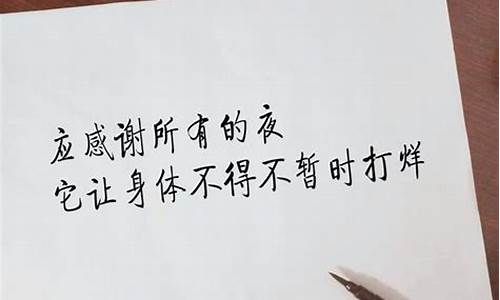 应感谢所有的夜
它让身体不得不暂时打烊